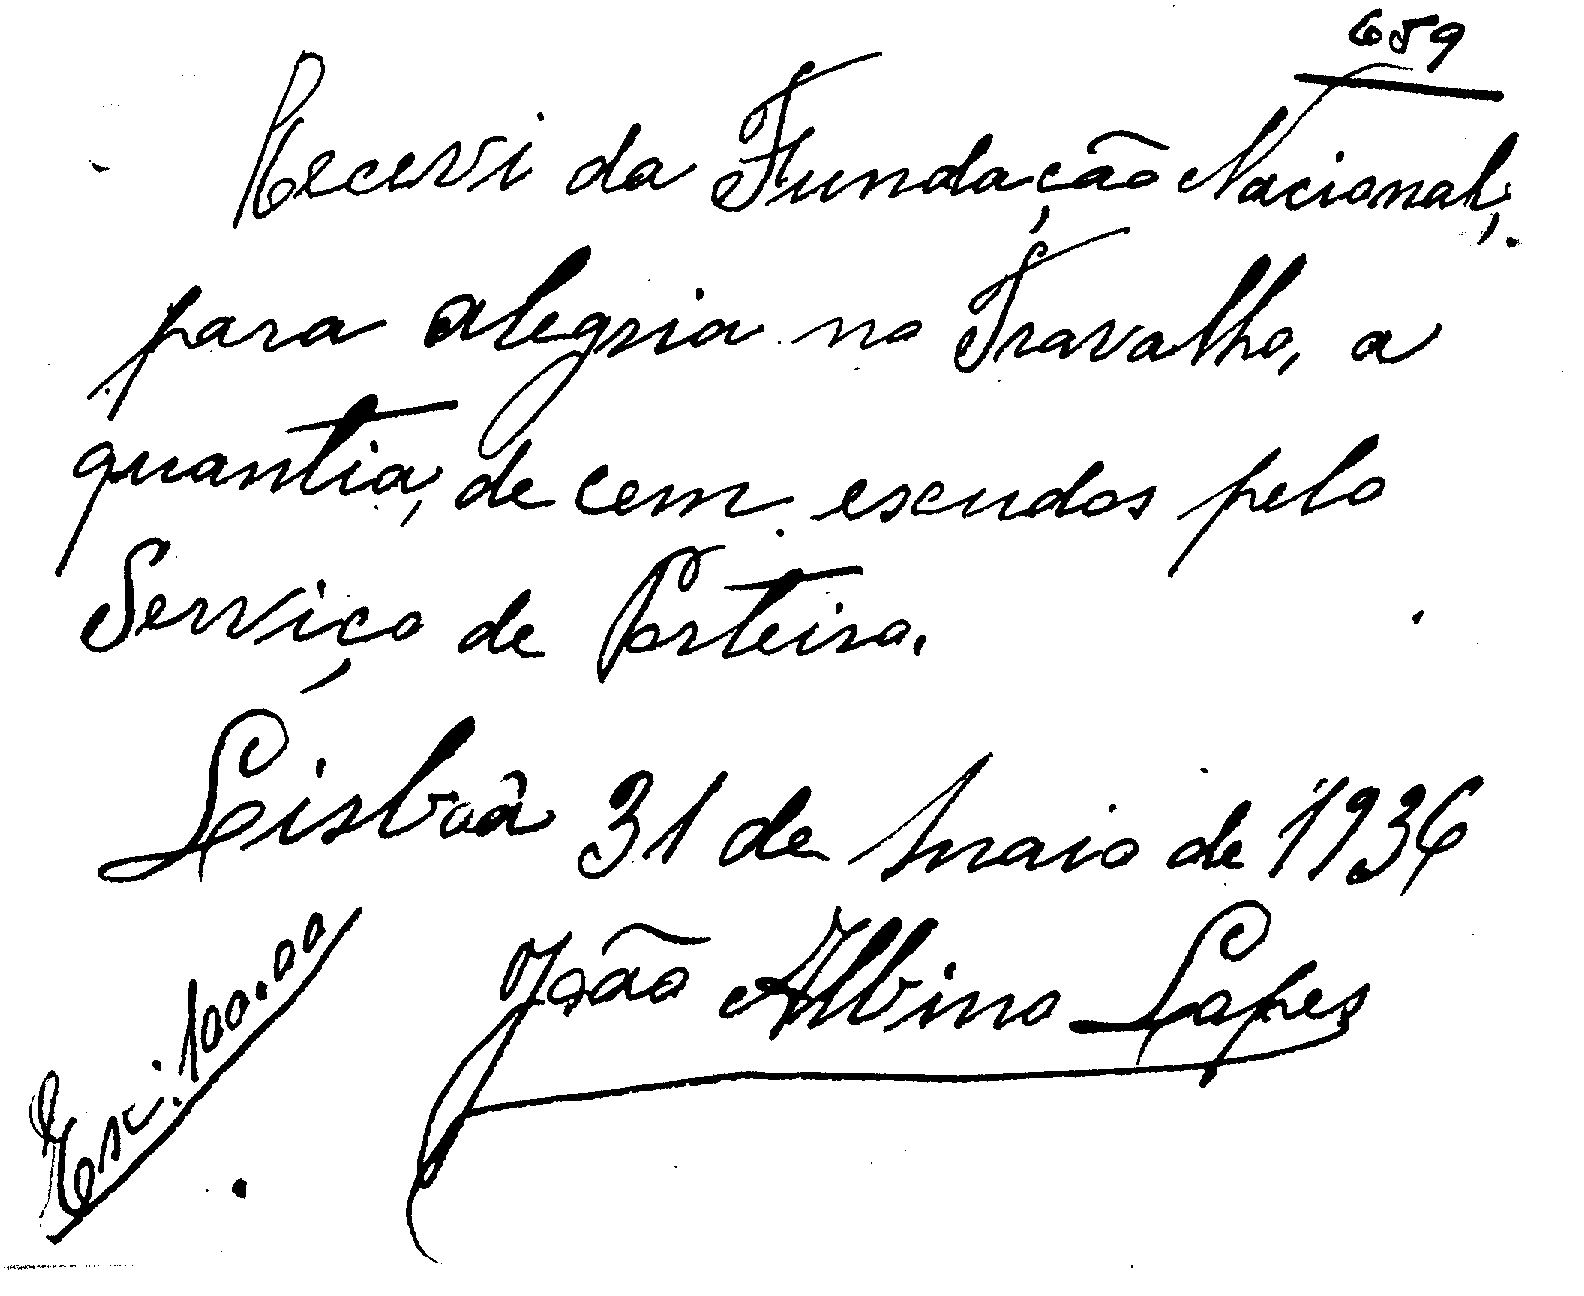 659
Recevi da Fundação Nacional,
para alegria no Travalho, a
quantia, de cem escudos pelo
Serviço de Porteiro.
Lisboà 31 de maio de 1936
João Albino Lopes
Esc. 100.00